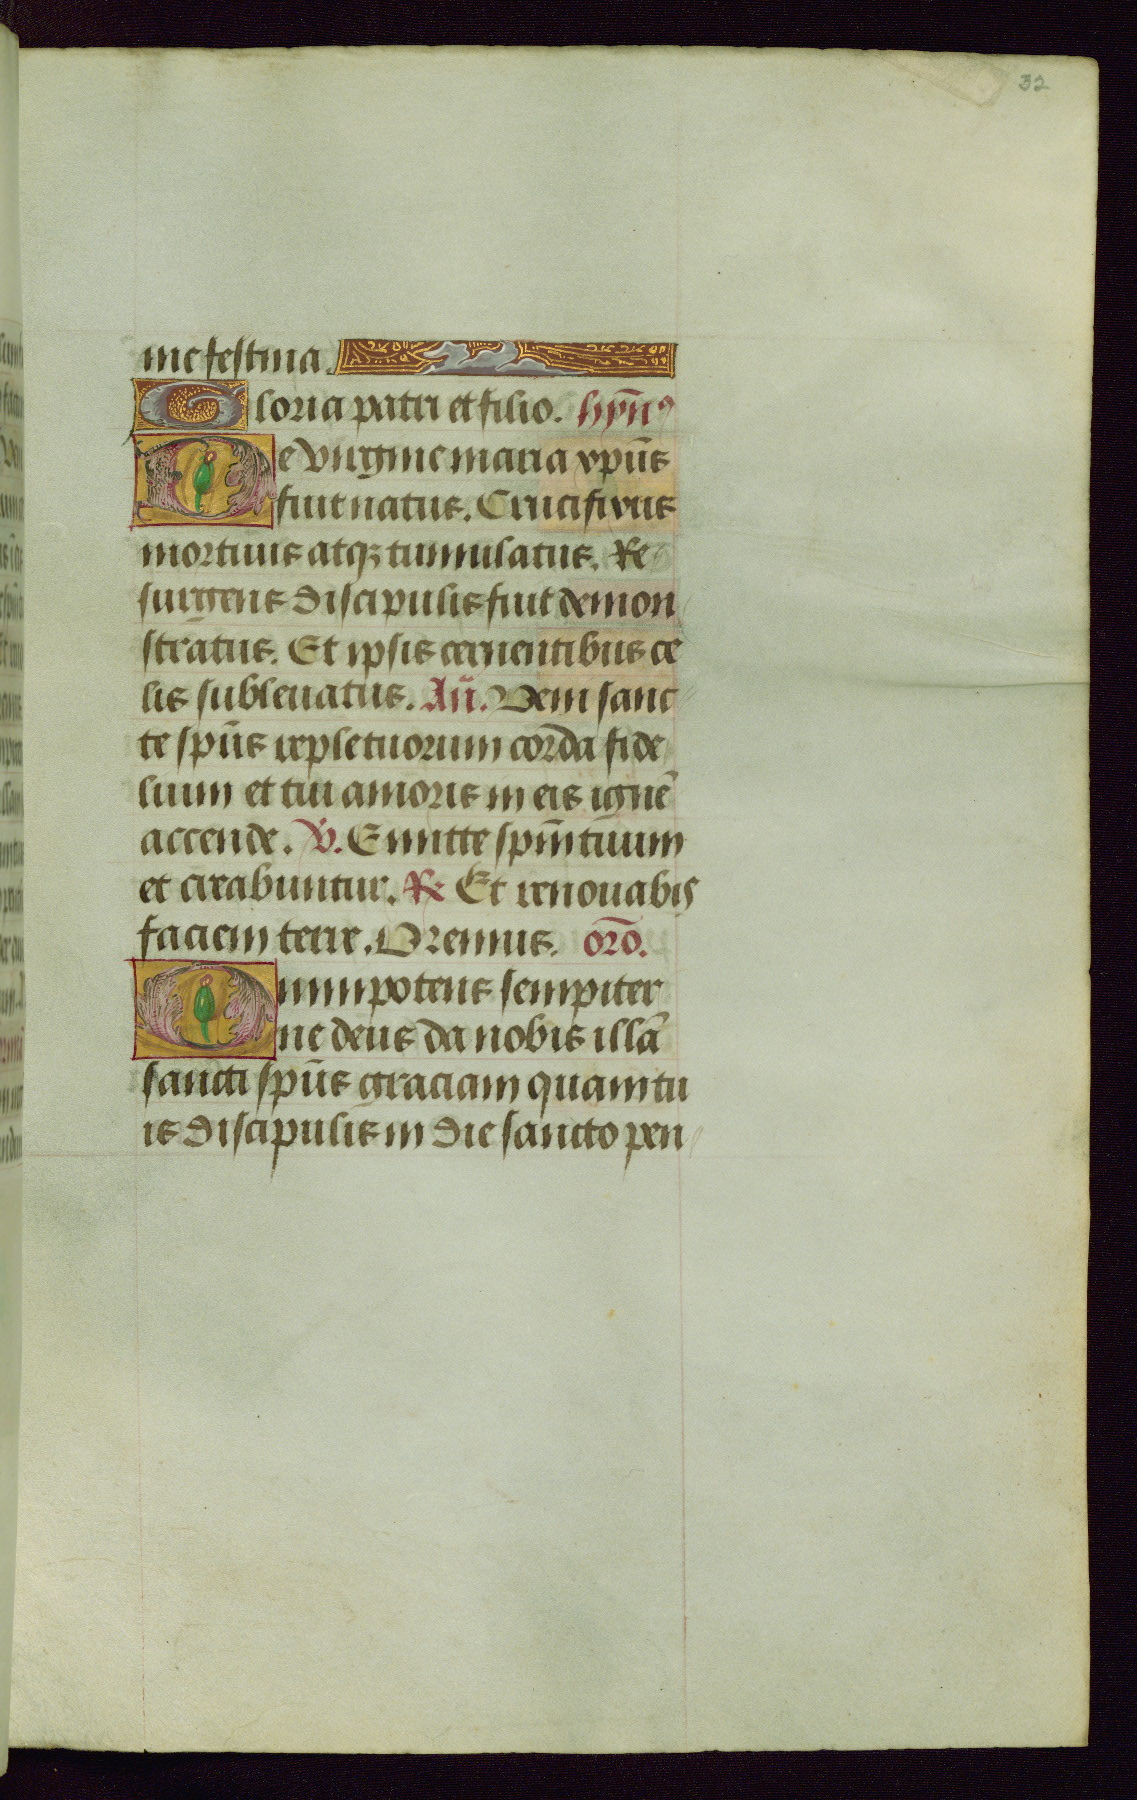 32
me festina.
Gloria patri et filio. hȳnꝰ
De virgine maria xpūs
fuit natus. Crucifixus
mortuus atqꝫ tumulatus. Re
surgens discipulis fuit demon
stratus. Et ipsis cernentibus ce
lis subleuatus. Añ. Veni sanc
te spūs reple tuorum corda fide
lium et tui amoris in eis ignē
accende. V. Emitte spm̄ tuum
et creabuntur. R Et renouabis
faciem terre. Oremus. or̄o.
Omnipotens sempiter
ne deus da nobis illā
sancti spūs graciam quam tu
is discipulis in die sancto pen